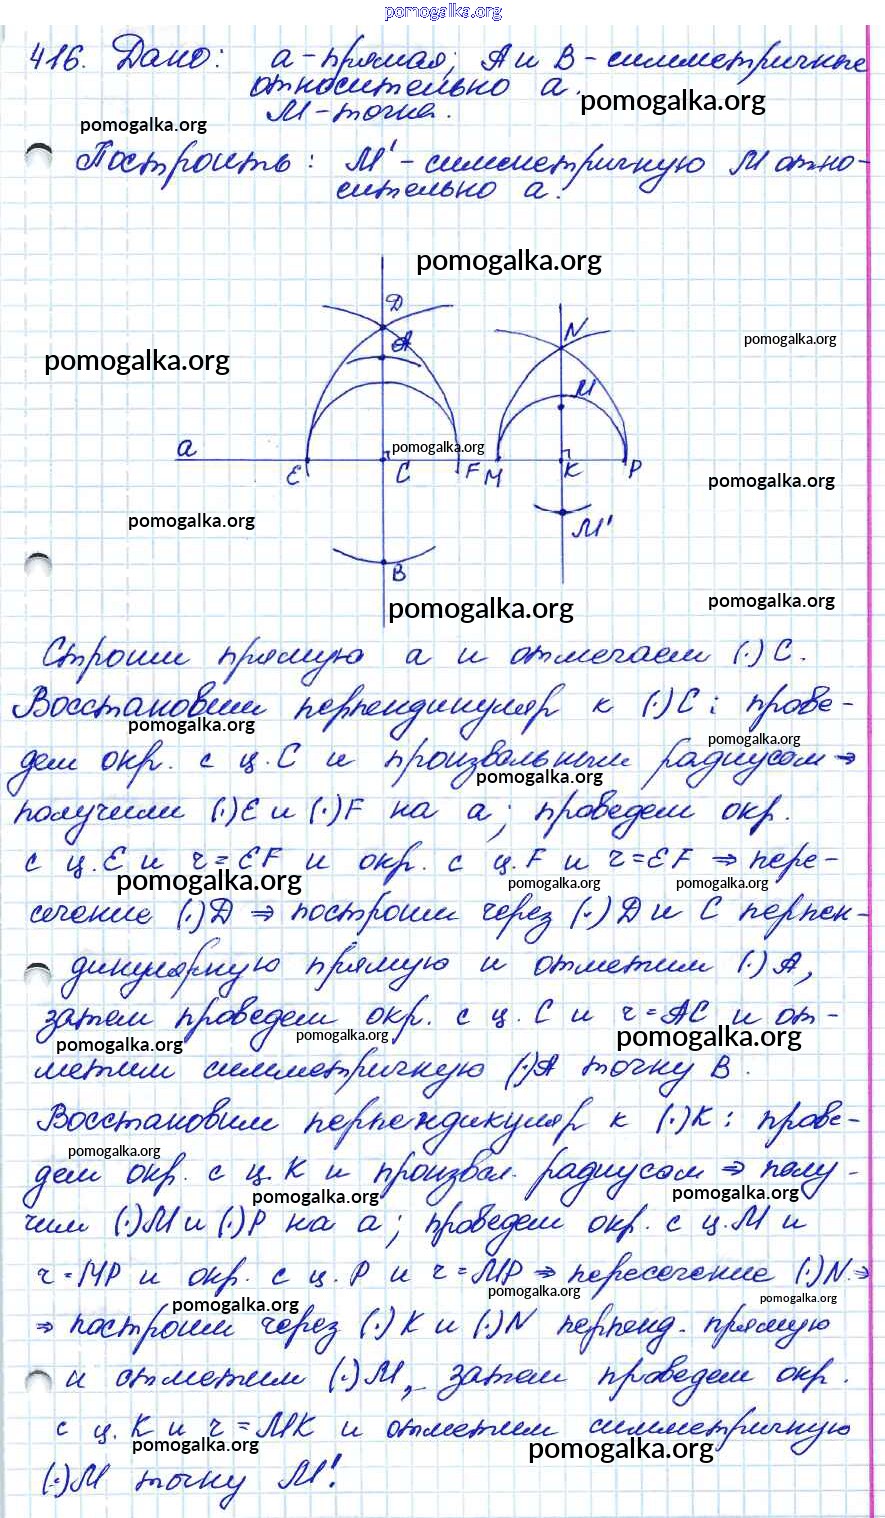 pomogalka.org
416. Дано: a - прямая; A и B - симметричные
относительно a.
pomogalka.org
M - точка.
pomogalka.org
Построить: M' - симметричную M отно-
сительно a.
pomogalka.org
D
N
A
pomogalka.org
pomogalka.org
M
a
pomogalka.org
E C F M K P
pomogalka.org
pomogalka.org
M'
B
pomogalka.org
pomogalka.org
Строим прямую a и отмечаем (·) C.
Восстановим перпендикуляр к (·) C: прове-
pomogalka.org
pomogalka.org
дем окр. с ц. C и произвольным радиусом ⇒
pomogalka.org
получим (·) E и (·) F на a; проведем окр.
с ц. E и r = EF и окр. с ц. F и r = EF ⇒ пере-
pomogalka.org
pomogalka.org
pomogalka.org
сечение (·) D ⇒ построим через (·) D и C перпен-
дикулярную прямую и отметим (·) A,
затем проведем окр. с ц. C и r = AC и от-
pomogalka.org
pomogalka.org
pomogalka.org
метим симметричную (·) A точку B.
Восстановим перпендикуляр к (·) K: прове-
pomogalka.org
дем окр. с ц. K и произвол. радиусом ⇒ полу-
pomogalka.org
pomogalka.org
чим (·) M и (·) P на a; проведем окр. с ц. M и
r = MP и окр. с ц. P и r = MP ⇒ пересечение (·) N ⇒
pomogalka.org
pomogalka.org
pomogalka.org
⇒ построим через (·) K и (·) N перпенд. прямую
и отметим (·) M, затем проведем окр.
с ц. K и r = MK и отметим симметричную
pomogalka.org
pomogalka.org
(·) M точку M'.